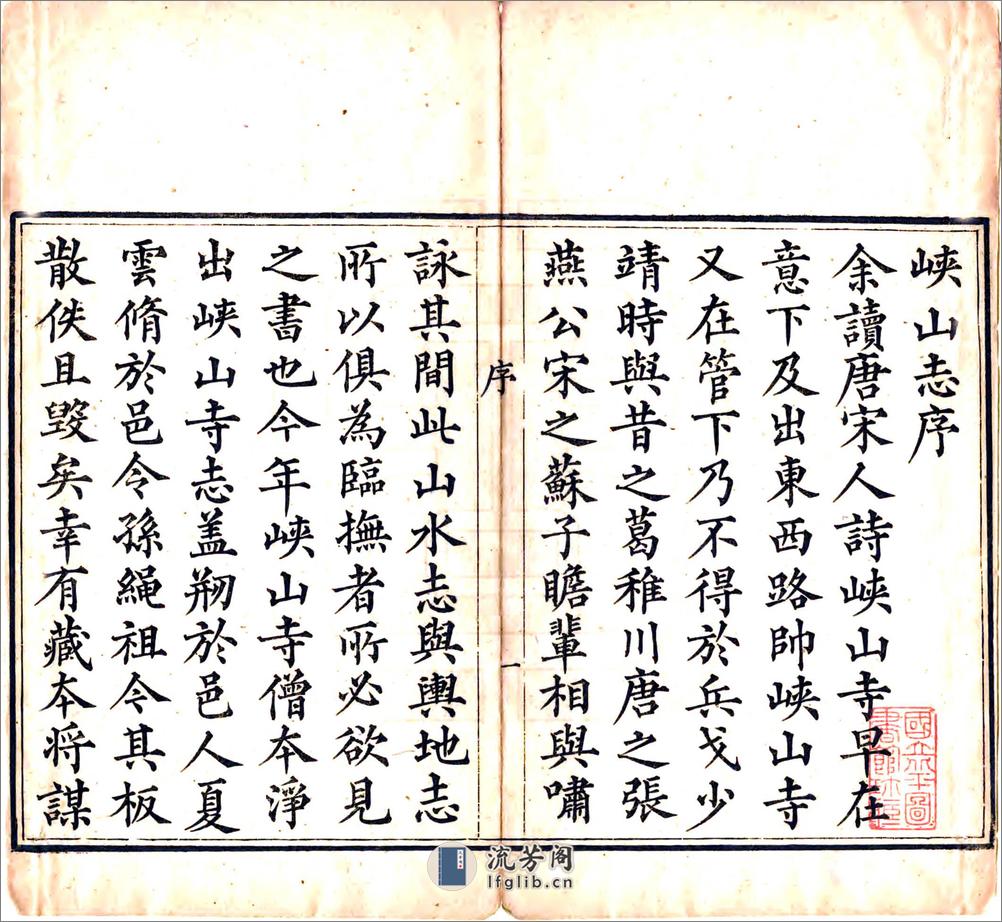 峽山志序
余讀唐宋人詩峽山寺早在
意下及出東西路帥峽山寺
又在管下乃不得於兵戈少
靖時與昔之葛稚川唐之張
燕公宋之蘇子瞻輩相與嘯
序
一
詠其間此山水志與輿地志
所以俱為臨撫者所必欲見
之書也今年峽山寺僧本淨
出峽山寺志盖剏於邑人夏
雲脩於邑令孫繩祖今其板
散佚且毀矣幸有藏本将謀
流芳阁
lfglib.cn